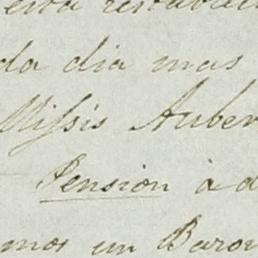 esta
da dia mas
Missis Auber
Pension à d
mos un Baron